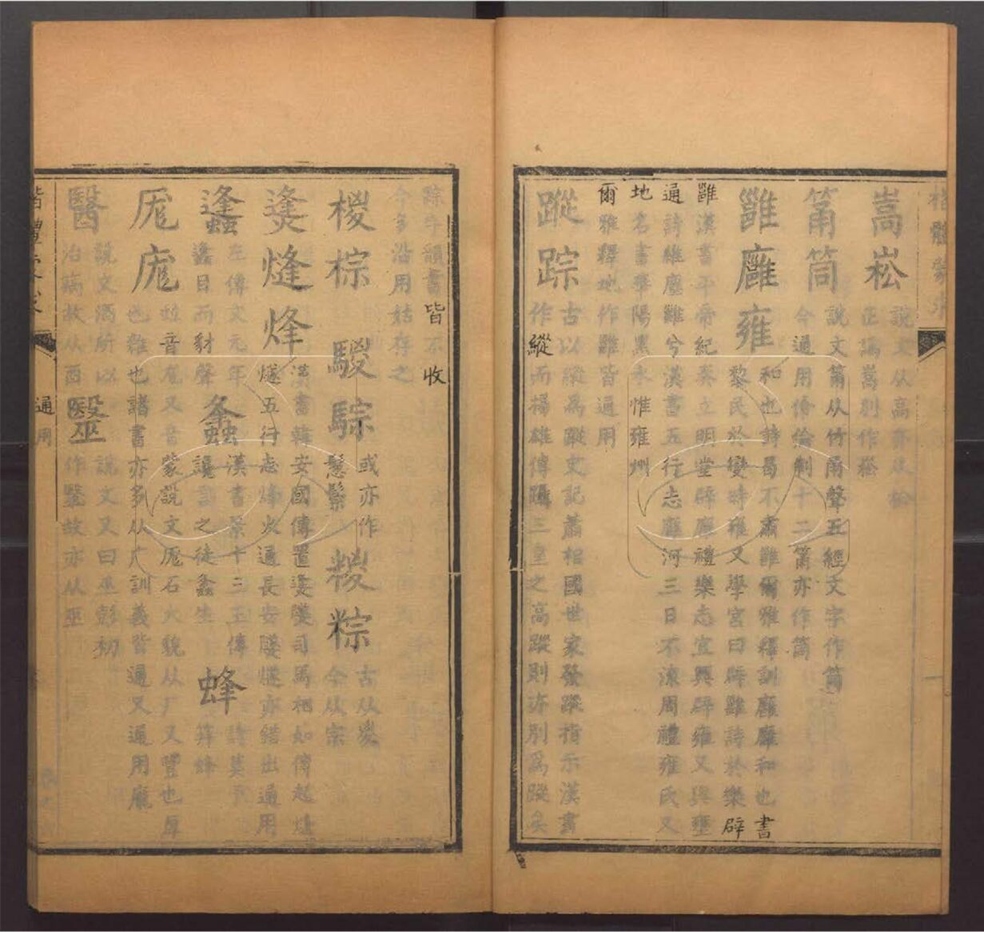 嵩崧 說文从高亦从松
正譌嵩別作崧
筩筒 說文筩从竹甬聲五經文字作筩
今通用伶倫制十二筩亦作筒
雝廱雍 和也詩曷不肅雝爾雅釋訓廱廱和也書
黎民於變時雍又學宮曰辟雝詩於樂辟
雝漢書平帝紀奏立明堂辟廱禮樂志宣興辟雍又與壅
通詩維塵雝兮漢書五行志廱河三日不流周禮雍氏又
地名書華陽黑水惟雍州
爾雅釋地作雝皆通用
蹤踪 古以縱為蹤史記蕭相國世家發蹤指示漢書
作縱而楊雄傳躡三皇之高蹤則亦別為蹤矣
踪字韻書皆不收
今多沿用姑存之
椶棕 騣騌 或亦作
鬉鬃 糉粽 古从㚇
今从宗
㷭燧烽 漢書韓安國傳置㷭燧司馬相如傳㷭燧
五行志烽火通長安燧亦錯出通用
蠭 左傳文元年
蠭目而豺聲 螽 漢書景十三王傳
讒言之徒螽生 蜂
厖庬 竝音尨又音蒙說文厖石大貌从厂又豐也厚
也雜也諸書亦多从广訓義皆通又通用龐
醫 治病故从酉
說文酒所以 毉 說文又曰巫彭初
作毉故亦从巫
通用